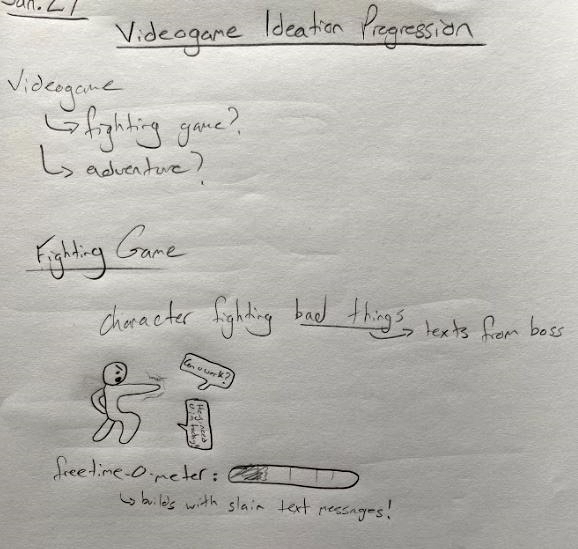 Jan. 27
Videogame Ideation Progression
Videogame
↳ fighting game?
↳ adventure?
Fighting Game
character fighting bad things
↳ texts from boss
Can u work?
Hey need u in today!
freetime-o-meter:
↳ builds with slain text messages!